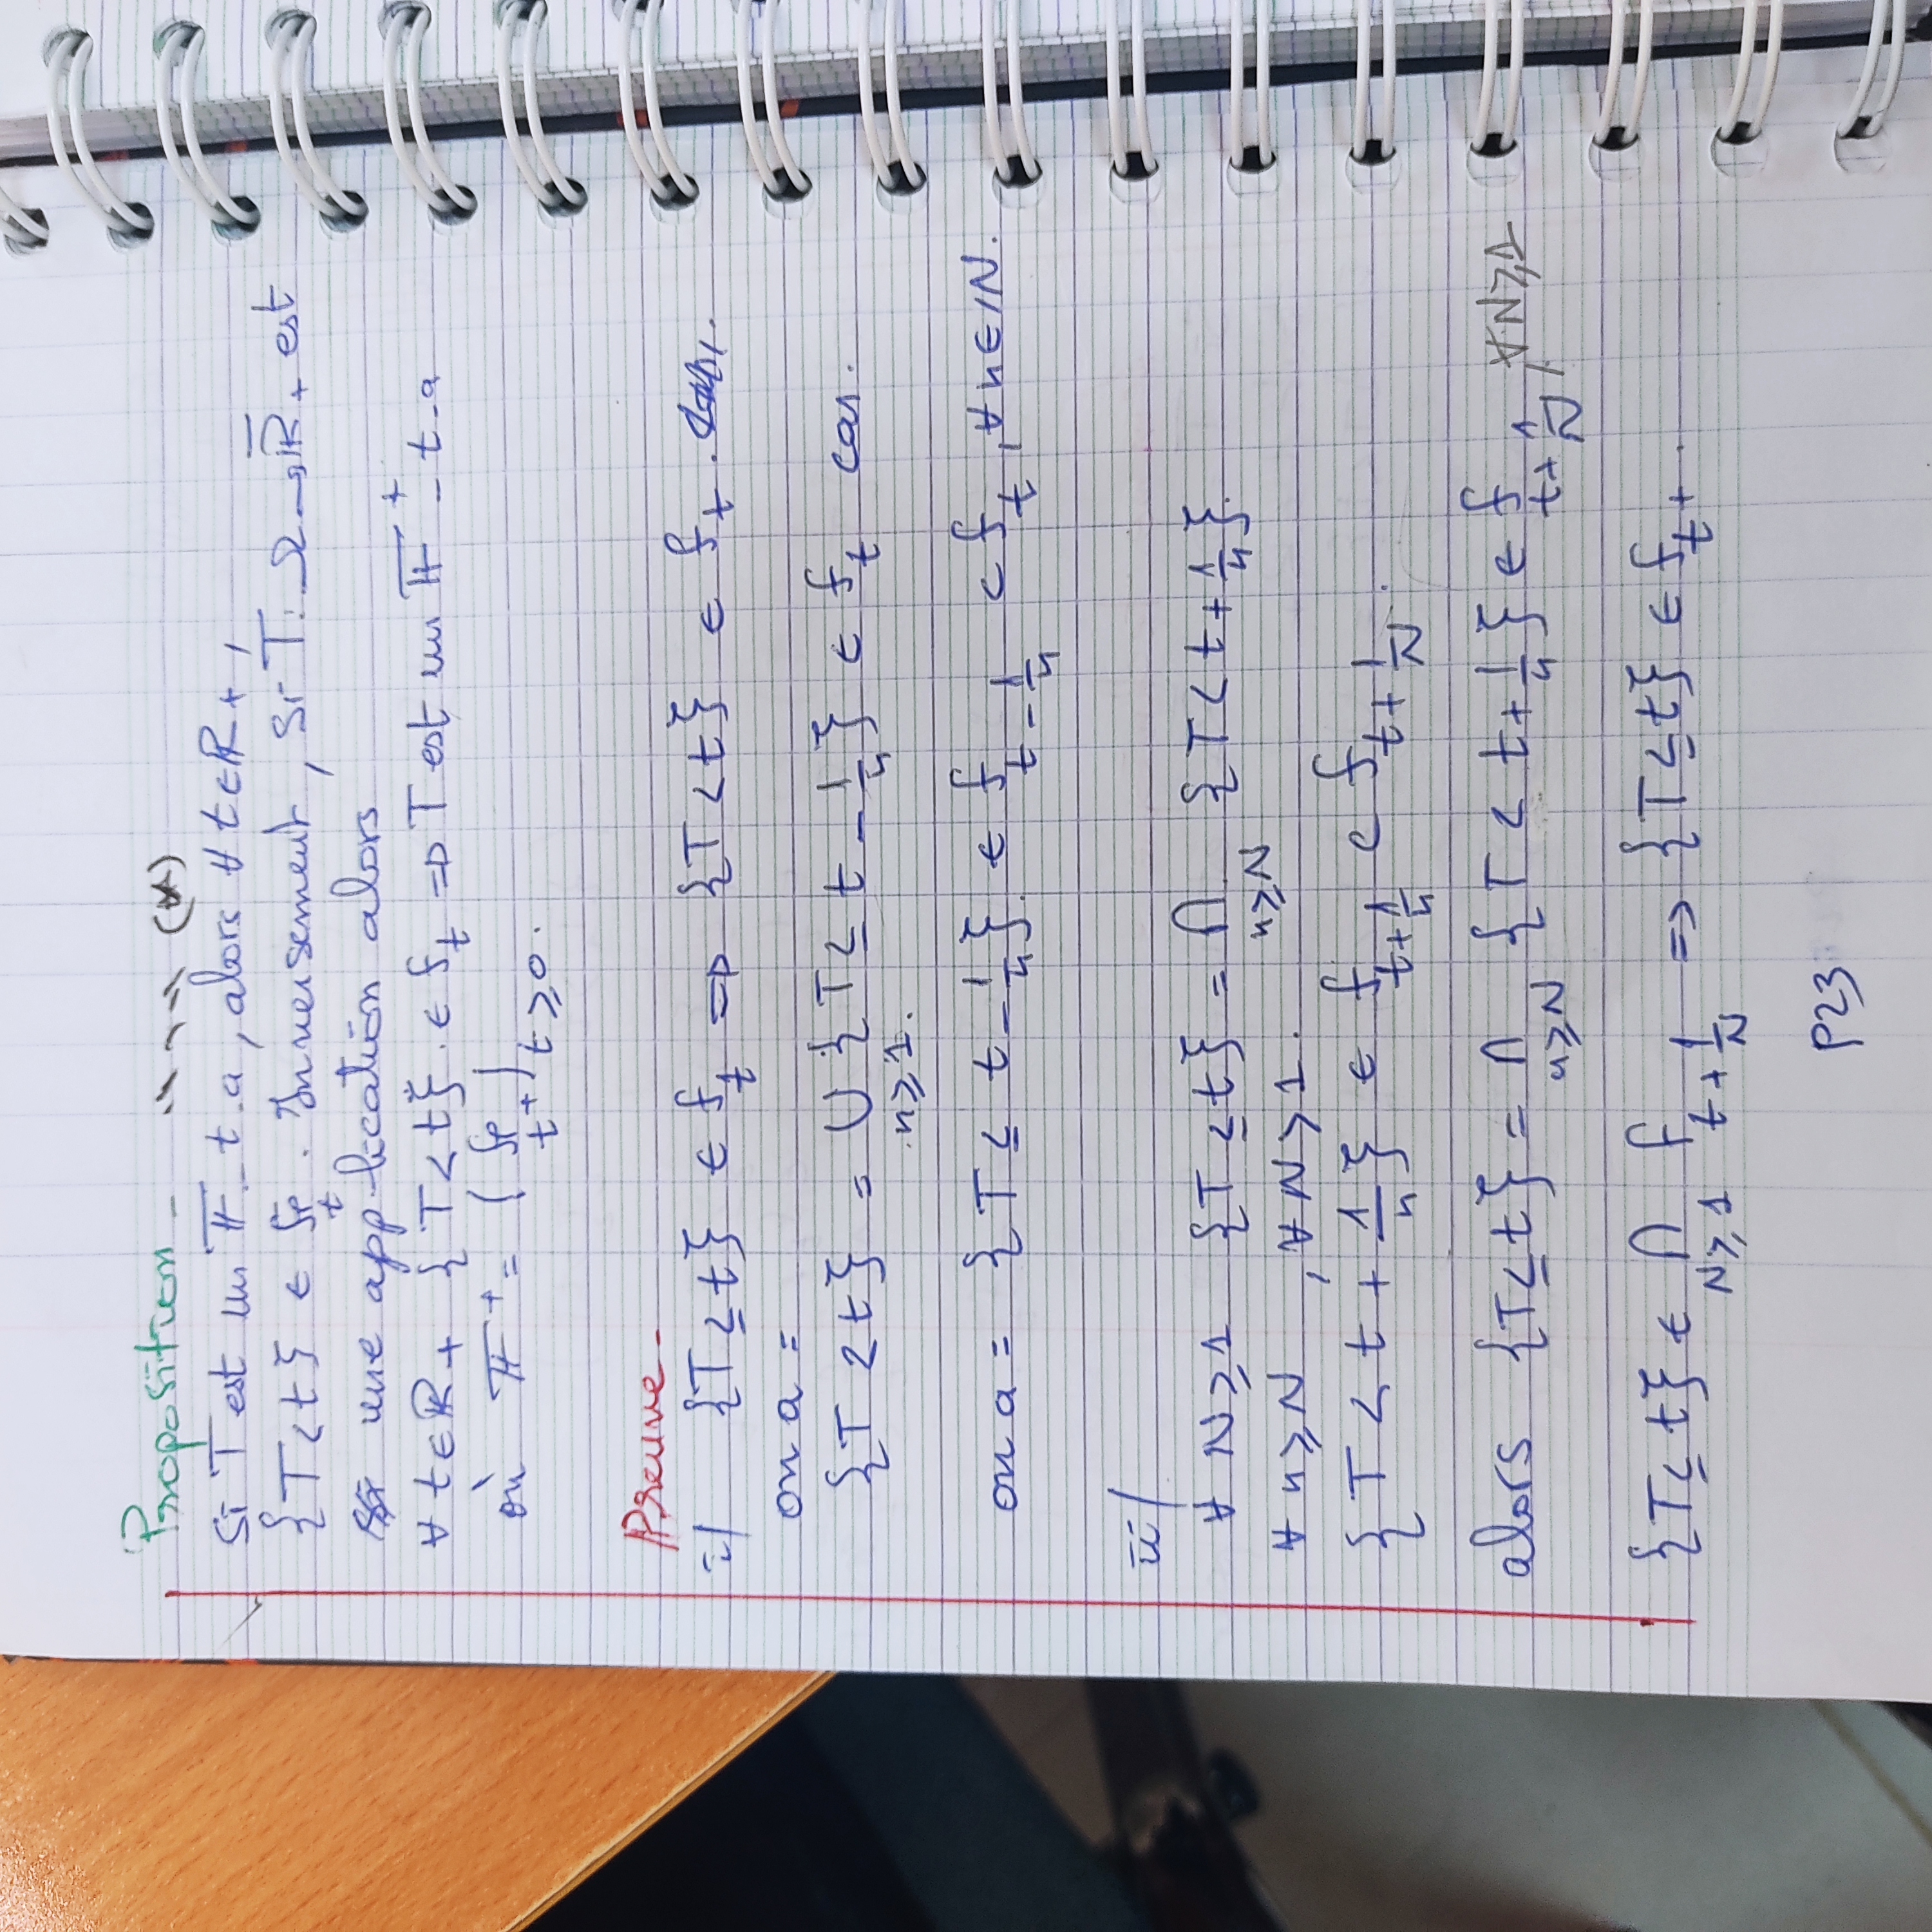 Proposition - (*)
Si T est un 𝔽-t-a, alors ∀ t ∈ ℝ+,
{T < t} ∈ ℱ_t. Inversement, si T: Ω → ℝ̄+ est
une application alors
∀ t ∈ ℝ+ {T < t} ∈ f_t => T est un 𝔽⁺-t-a
où 𝔽⁺ = (ℱ_t+)_t≥0.
Preuve -
i/ {T ≤ t} ∈ f_t => {T < t} ∈ f_t.
on a =
{T < t} = ∪_n≥1 {T ≤ t - 1/n} ∈ f_t car.
on a = {T ≤ t - 1/n} ∈ f_t-1/n ⊂ f_t, ∀ n ∈ ℕ.
ii/
∀ N ≥ 1 {T ≤ t} = ∩_n≥N {T < t + 1/n}.
∀ n ≥ N, ∀ N > 1.
{T < t + 1/n} ∈ f_t+1/n ⊂ f_t+1/N.
alors {T ≤ t} = ∩_n≥N {T < t + 1/n} ∈ f_t+1/N, ∀ N ≥ 1
{T ≤ t} ∈ ∩_N≥1 f_t+1/N => {T ≤ t} ∈ f_t+.
P23